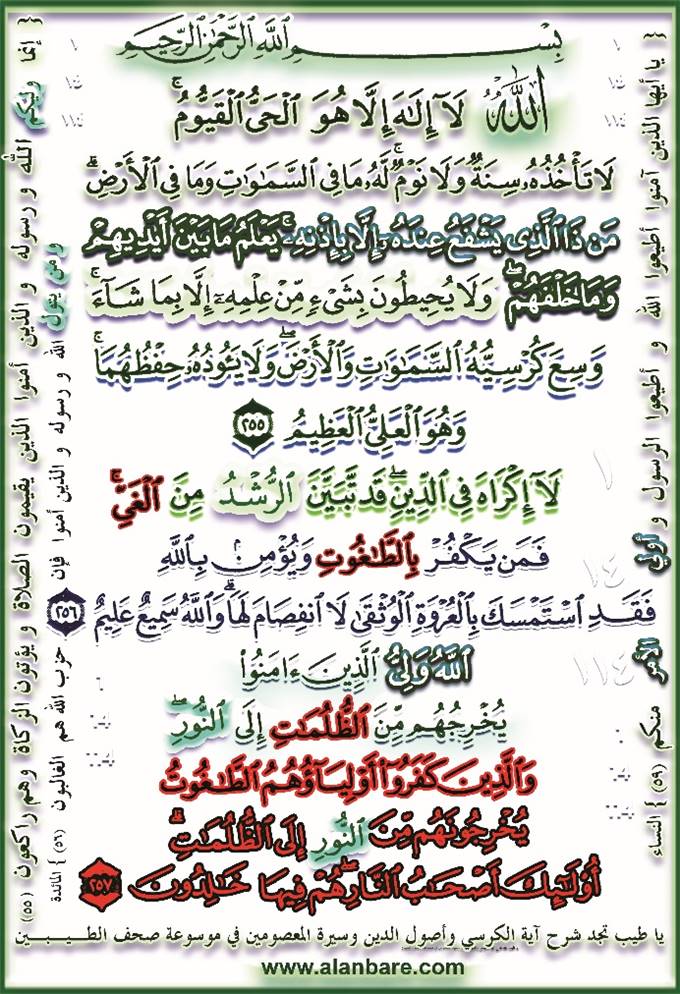 بِسْمِ ٱللَّهِ ٱلرَّحْمَٰنِ ٱلرَّحِيمِ
ٱللَّهُ لَآ إِلَٰهَ إِلَّا هُوَ ٱلْحَىُّ ٱلْقَيُّومُ ۚ
لَا تَأْخُذُهُۥ سِنَةٌ وَلَا نَوْمٌ ۚ لَّهُۥ مَا فِى ٱلسَّمَٰوَٰتِ وَمَا فِى ٱلْأَرْضِ ۗ
مَن ذَا ٱلَّذِى يَشْفَعُ عِندَهُۥٓ إِلَّا بِإِذْنِهِۦ ۚ يَعْلَمُ مَا بَيْنَ أَيْدِيهِمْ
وَمَا خَلْفَهُمْ ۖ وَلَا يُحِيطُونَ بِشَىْءٍ مِّنْ عِلْمِهِۦٓ إِلَّا بِمَا شَآءَ ۚ
وَسِعَ كُرْسِيُّهُ ٱلسَّمَٰوَٰتِ وَٱلْأَرْضَ ۖ وَلَا يَـُٔودُهُۥ حِفْظُهُمَا ۚ
وَهُوَ ٱلْعَلِىُّ ٱلْعَظِيمُ ٢٥٥
لَآ إِكْرَاهَ فِى ٱلدِّينِ ۖ قَد تَّبَيَّنَ ٱلرُّشْدُ مِنَ ٱلْغَىِّ ۚ
فَمَن يَكْفُرْ بِٱلطَّٰغُوتِ وَيُؤْمِنۢ بِٱللَّهِ
فَقَدِ ٱسْتَمْسَكَ بِٱلْعُرْوَةِ ٱلْوُثْقَىٰ لَا ٱنفِصَامَ لَهَا ۗ وَٱللَّهُ سَمِيعٌ عَلِيمٌ ٢٥٦
ٱللَّهُ وَلِىُّ ٱلَّذِينَ ءَامَنُوا۟
يُخْرِجُهُم مِّنَ ٱلظُّلُمَٰتِ إِلَى ٱلنُّورِ ۖ
وَٱلَّذِينَ كَفَرُوٓا۟ أَوْلِيَآؤُهُمُ ٱلطَّٰغُوتُ
يُخْرِجُونَهُم مِّنَ ٱلنُّورِ إِلَى ٱلظُّلُمَٰتِ ۗ
أُو۟لَٰٓئِكَ أَصْحَٰبُ ٱلنَّارِ ۖ هُمْ فِيهَا خَٰلِدُونَ ٢٥٧
{ يا أيها الذين آمنوا أطيعوا الله و أطيعوا الرسول و أولي الأمر منكم (٥٩) } النساء
{ إنما وليكم الله و رسوله و الذين آمنوا الذين يقيمون الصلاة و يؤتون الزكاة وهم راكعون (٥٥)
ومن يتول الله و رسوله و الذين آمنوا فإن حزب الله هم الغالبون (٥٦) } المائدة
١
١٤
١١٤
١
١٤
١١٤
١
١٤
١١٤
يا طيب تجد شرح آية الكرسي وأصول الدين وسيرة المعصومين في موسوعة صحف الطـــيـــبـــين
www.alanbare.com